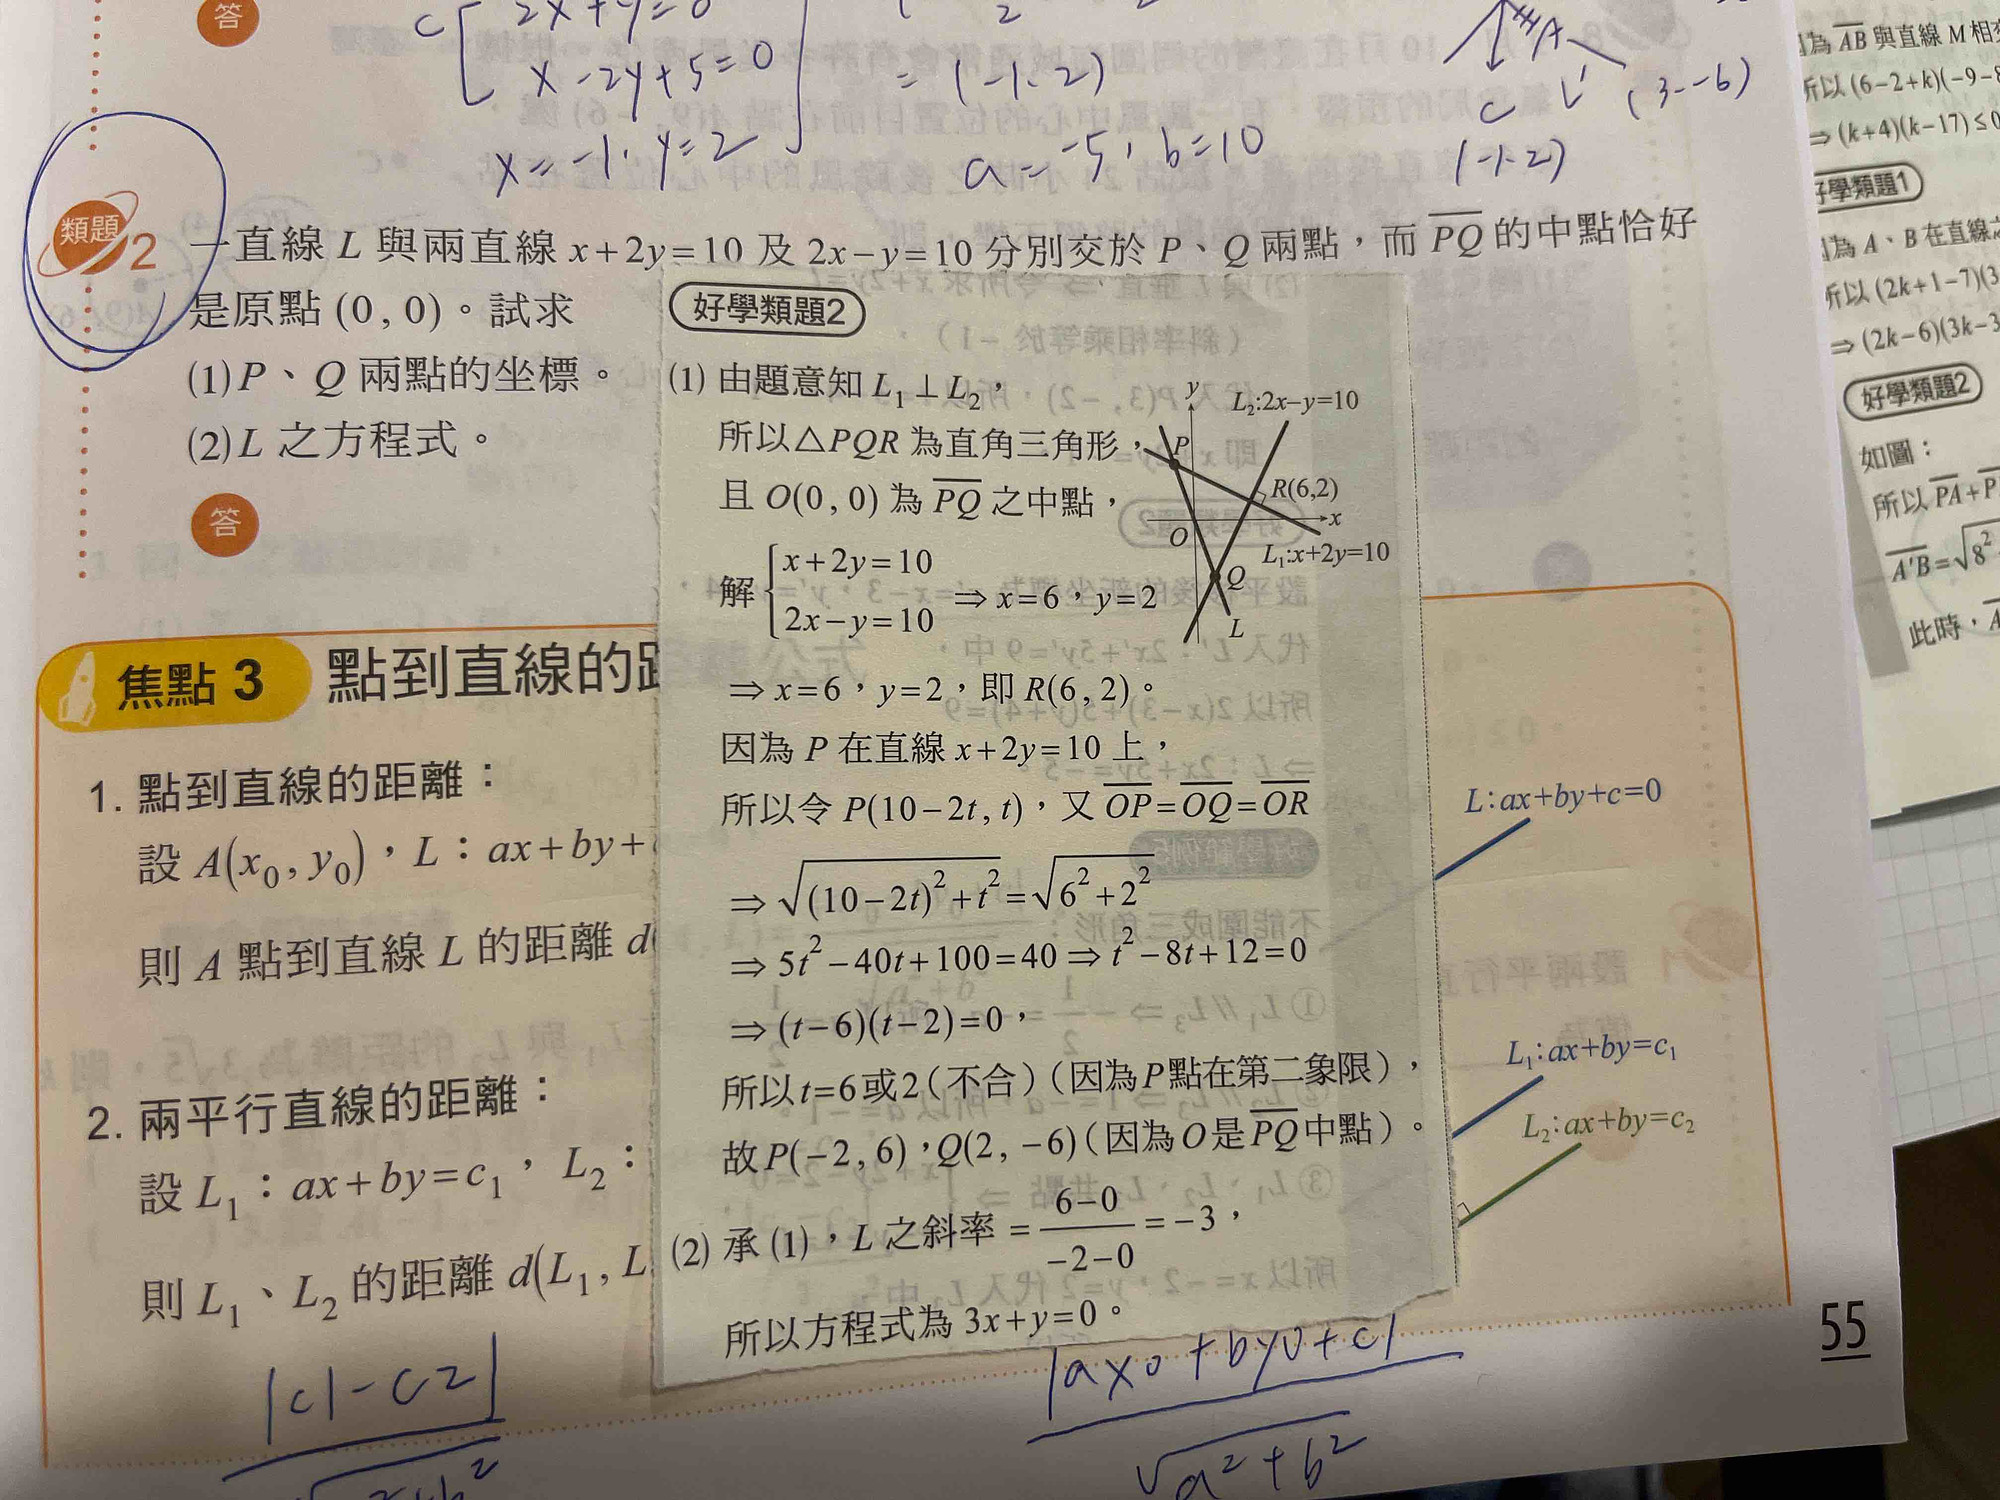 答
2x+y=0
x-2y+5=0
x=-1, y=2
=(-1, 2)
a=-5, b=10
A
C L' (3,-6)
(-1,2)
類題2 一直線 L 與兩直線 x+2y=10 及 2x-y=10 分別交於 P、Q 兩點，而 \overline{PQ} 的中點恰好
是原點 (0, 0)。試求
(1)P、Q 兩點的坐標。
(2)L 之方程式。
答
好學類題2
(1) 由題意知 L₁⊥L₂，
所以△PQR 為直角三角形，
且 O(0, 0) 為 \overline{PQ} 之中點，
解 { x+2y=10
2x-y=10 ⇒ x=6，y=2
⇒ x=6，y=2，即 R(6, 2)。
因為 P 在直線 x+2y=10 上，
所以令 P(10-2t, t)，又 \overline{OP}=\overline{OQ}=\overline{OR}
⇒ √((10-2t)²+t²)=√(6²+2²)
⇒ 5t²-40t+100=40 ⇒ t²-8t+12=0
⇒ (t-6)(t-2)=0，
所以 t=6或2（不合）（因為P點在第二象限），
故 P(-2, 6)，Q(2, -6)（因為O是\overline{PQ}中點）。
(2) 承 (1)，L 之斜率 = (6-0)/(-2-0) = -3，
所以方程式為 3x+y=0。
y
L₂:2x-y=10
P
R(6,2)
x
O
L₁:x+2y=10
Q
L
焦點 3 點到直線的
1. 點到直線的距離：
設 A(x₀, y₀)，L：ax+by+
則 A 點到直線 L 的距離 d
2. 兩平行直線的距離：
設 L₁：ax+by=c₁，L₂：
則 L₁、L₂ 的距離 d(L₁, L
L:ax+by+c=0
L₁:ax+by=c₁
L₂:ax+by=c₂
55
|c1-c2|
|ax0+by0+c|
√a²+b²
為 \overline{AB} 與直線 M 相
所以 (6-2+k)(-9-
⇒ (k+4)(k-17)≤0
好學類題1
為 A、B 在直線
所以 (2k+1-7)(3
⇒ (2k-6)(3k-3
好學類題2
如圖：
所以 \overline{PA}+
\overline{A'B}=√8²
此時，